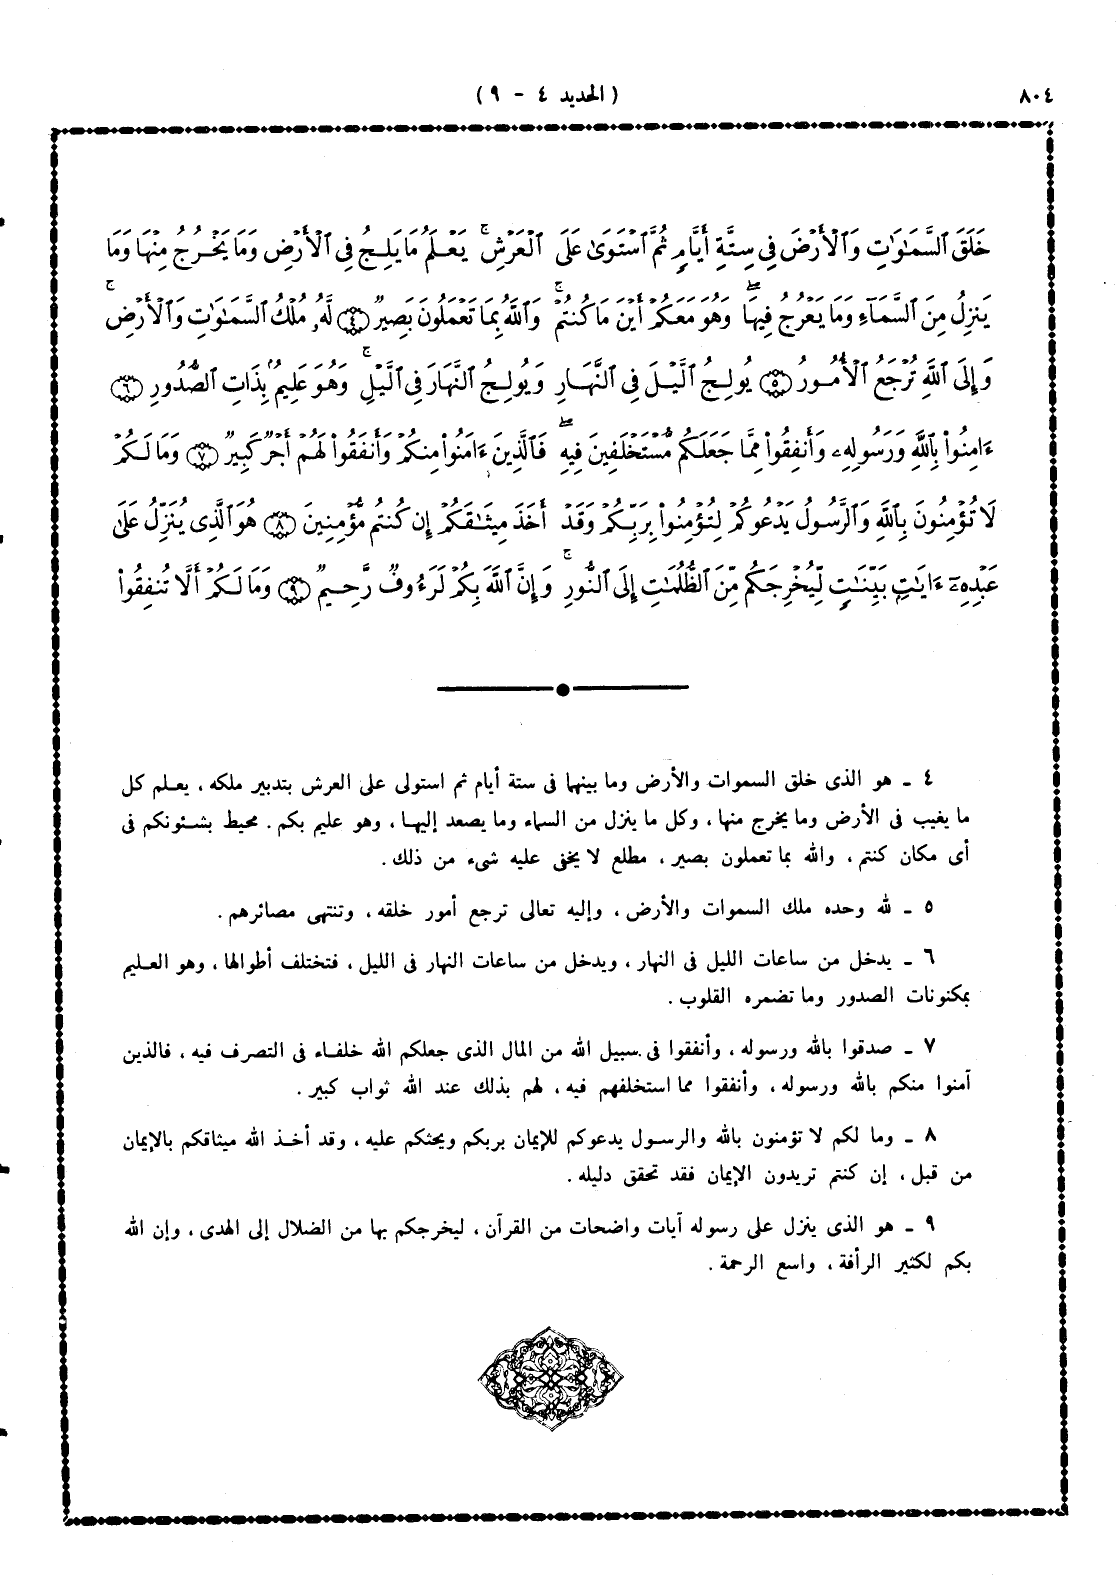 ٨٠٤
( الحديد ٤ - ٩ )
خَلَقَ ٱلسَّمَٰوَٰتِ وَٱلْأَرْضَ فِى سِتَّةِ أَيَّامٍ ثُمَّ ٱسْتَوَىٰ عَلَى ٱلْعَرْشِ ۚ يَعْلَمُ مَا يَلِجُ فِى ٱلْأَرْضِ وَمَا يَخْرُجُ مِنْهَا وَمَا
يَنزِلُ مِنَ ٱلسَّمَآءِ وَمَا يَعْرُجُ فِيهَا ۖ وَهُوَ مَعَكُمْ أَيْنَ مَا كُنتُمْ ۚ وَٱللَّهُ بِمَا تَعْمَلُونَ بَصِيرٌ ﴿٤﴾ لَّهُۥ مُلْكُ ٱلسَّمَٰوَٰتِ وَٱلْأَرْضِ ۚ
وَإِلَى ٱللَّهِ تُرْجَعُ ٱلْأُمُورُ ﴿٥﴾ يُولِجُ ٱلَّيْلَ فِى ٱلنَّهَارِ وَيُولِجُ ٱلنَّهَارَ فِى ٱلَّيْلِ ۚ وَهُوَ عَلِيمٌۢ بِذَاتِ ٱلصُّدُورِ ﴿٦﴾
ءَامِنُوا۟ بِٱللَّهِ وَرَسُولِهِۦ وَأَنفِقُوا۟ مِمَّا جَعَلَكُم مُّسْتَخْلَفِينَ فِيهِ ۖ فَٱلَّذِينَ ءَامَنُوا۟ مِنكُمْ وَأَنفَقُوا۟ لَهُمْ أَجْرٌ كَبِيرٌ ﴿٧﴾ وَمَا لَكُمْ
لَا تُؤْمِنُونَ بِٱللَّهِ وَٱلرَّسُولُ يَدْعُوكُمْ لِتُؤْمِنُوا۟ بِرَبِّكُمْ وَقَدْ أَخَذَ مِيثَٰقَكُمْ إِن كُنتُم مُّؤْمِنِينَ ﴿٨﴾ هُوَ ٱلَّذِى يُنَزِّلُ عَلَىٰ
عَبْدِهِۦٓ ءَايَٰتٍۭ بَيِّنَٰتٍ لِّيُخْرِجَكُم مِّنَ ٱلظُّلُمَٰتِ إِلَى ٱلنُّورِ ۚ وَإِنَّ ٱللَّهَ بِكُمْ لَرَءُوفٌ رَّحِيمٌ ﴿٩﴾ وَمَا لَكُمْ أَلَّا تُنفِقُوا۟
٤ ـ هو الذى خلق السموات والأرض وما بينهما فى ستة أيام ثم استولى على العرش بتدبير ملكه ، يعلم كل
ما يغيب فى الأرض وما يخرج منها ، وكل ما ينزل من السماء وما يصعد إليها ، وهو عليم بكم . محيط بشئونكم فى
أى مكان كنتم ، والله بما تعملون بصير ، مطلع لا يخفى عليه شىء من ذلك .
٥ ـ لله وحده ملك السموات والأرض ، وإليه تعالى ترجع أمور خلقه ، وتنتهى مصائرهم .
٦ ـ يدخل من ساعات الليل فى النهار ، ويدخل من ساعات النهار فى الليل ، فتختلف أطوالها ، وهو العليم
بمكنونات الصدور وما تضمره القلوب .
٧ ـ صدقوا بالله ورسوله ، وأنفقوا فى سبيل الله من المال الذى جعلكم الله خلفاء فى التصرف فيه ، فالذين
آمنوا منكم بالله ورسوله ، وأنفقوا مما استخلفهم فيه ، لهم بذلك عند الله ثواب كبير .
٨ ـ وما لكم لا تؤمنون بالله والرسول يدعوكم للإيمان بربكم ويحثكم عليه ، وقد أخذ الله ميثاقكم بالإيمان
من قبل ، إن كنتم تريدون الإيمان فقد تحقق دليله .
٩ ـ هو الذى ينزل على رسوله آيات واضحات من القرآن ، ليخرجكم بها من الضلال إلى الهدى ، وإن الله
بكم لكثير الرأفة ، واسع الرحمة .